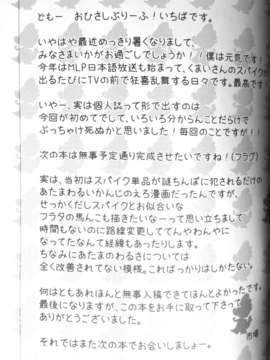 どもー　おひさしぶりーふ！いちばです。
いやはや最近めっきり暑くなりまして、
みなさまいかがお過ごしでしょうか！！僕は元気です！
今年はMLP日本語放送も始まって、くまいさんのスパイクが
出るたびにTVの前で狂喜乱舞する日々です。最高です
いやー、実は個人誌って形で出すのは
今回が初めてでして、いろいろ分からんことだらけで
ぶっちゃけ死ぬかと思いました！毎回のことですが！！
次の本は無事予定通り完成させたいですね！（フラグ）
実は、当初はスパイク単品が謎ちんぽに犯されるだけの
あたまわるいかんじのえろ漫画だったんですが、
せっかくだしスパイクとお似合いな
フラタの馬んこも描きたいなーって思い立ちまして
時間もないのに路線変更しててんやわんやに
なってたなんて経緯もあったりします。
ちなみにあたまのわるさについては
全く改善されてない模様。こればっかりはしかたない。
何はともあれほんと無事入稿できてほんとよかったです。
最後になりますが、この本をお手に取って下さって
ありがとうございました。
市場
それではまた次の本でお会いしましょー。